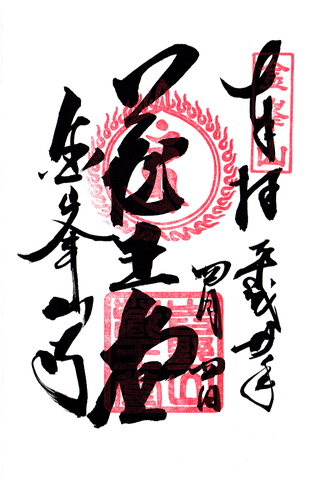 金峯山
奉拝
平成廿年
四月四日
蔵王堂
金峯山寺